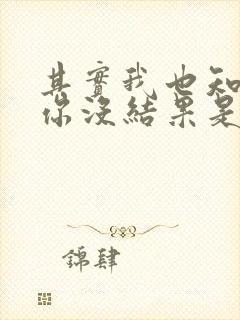 其實我也知
你沒結果是
錦肆